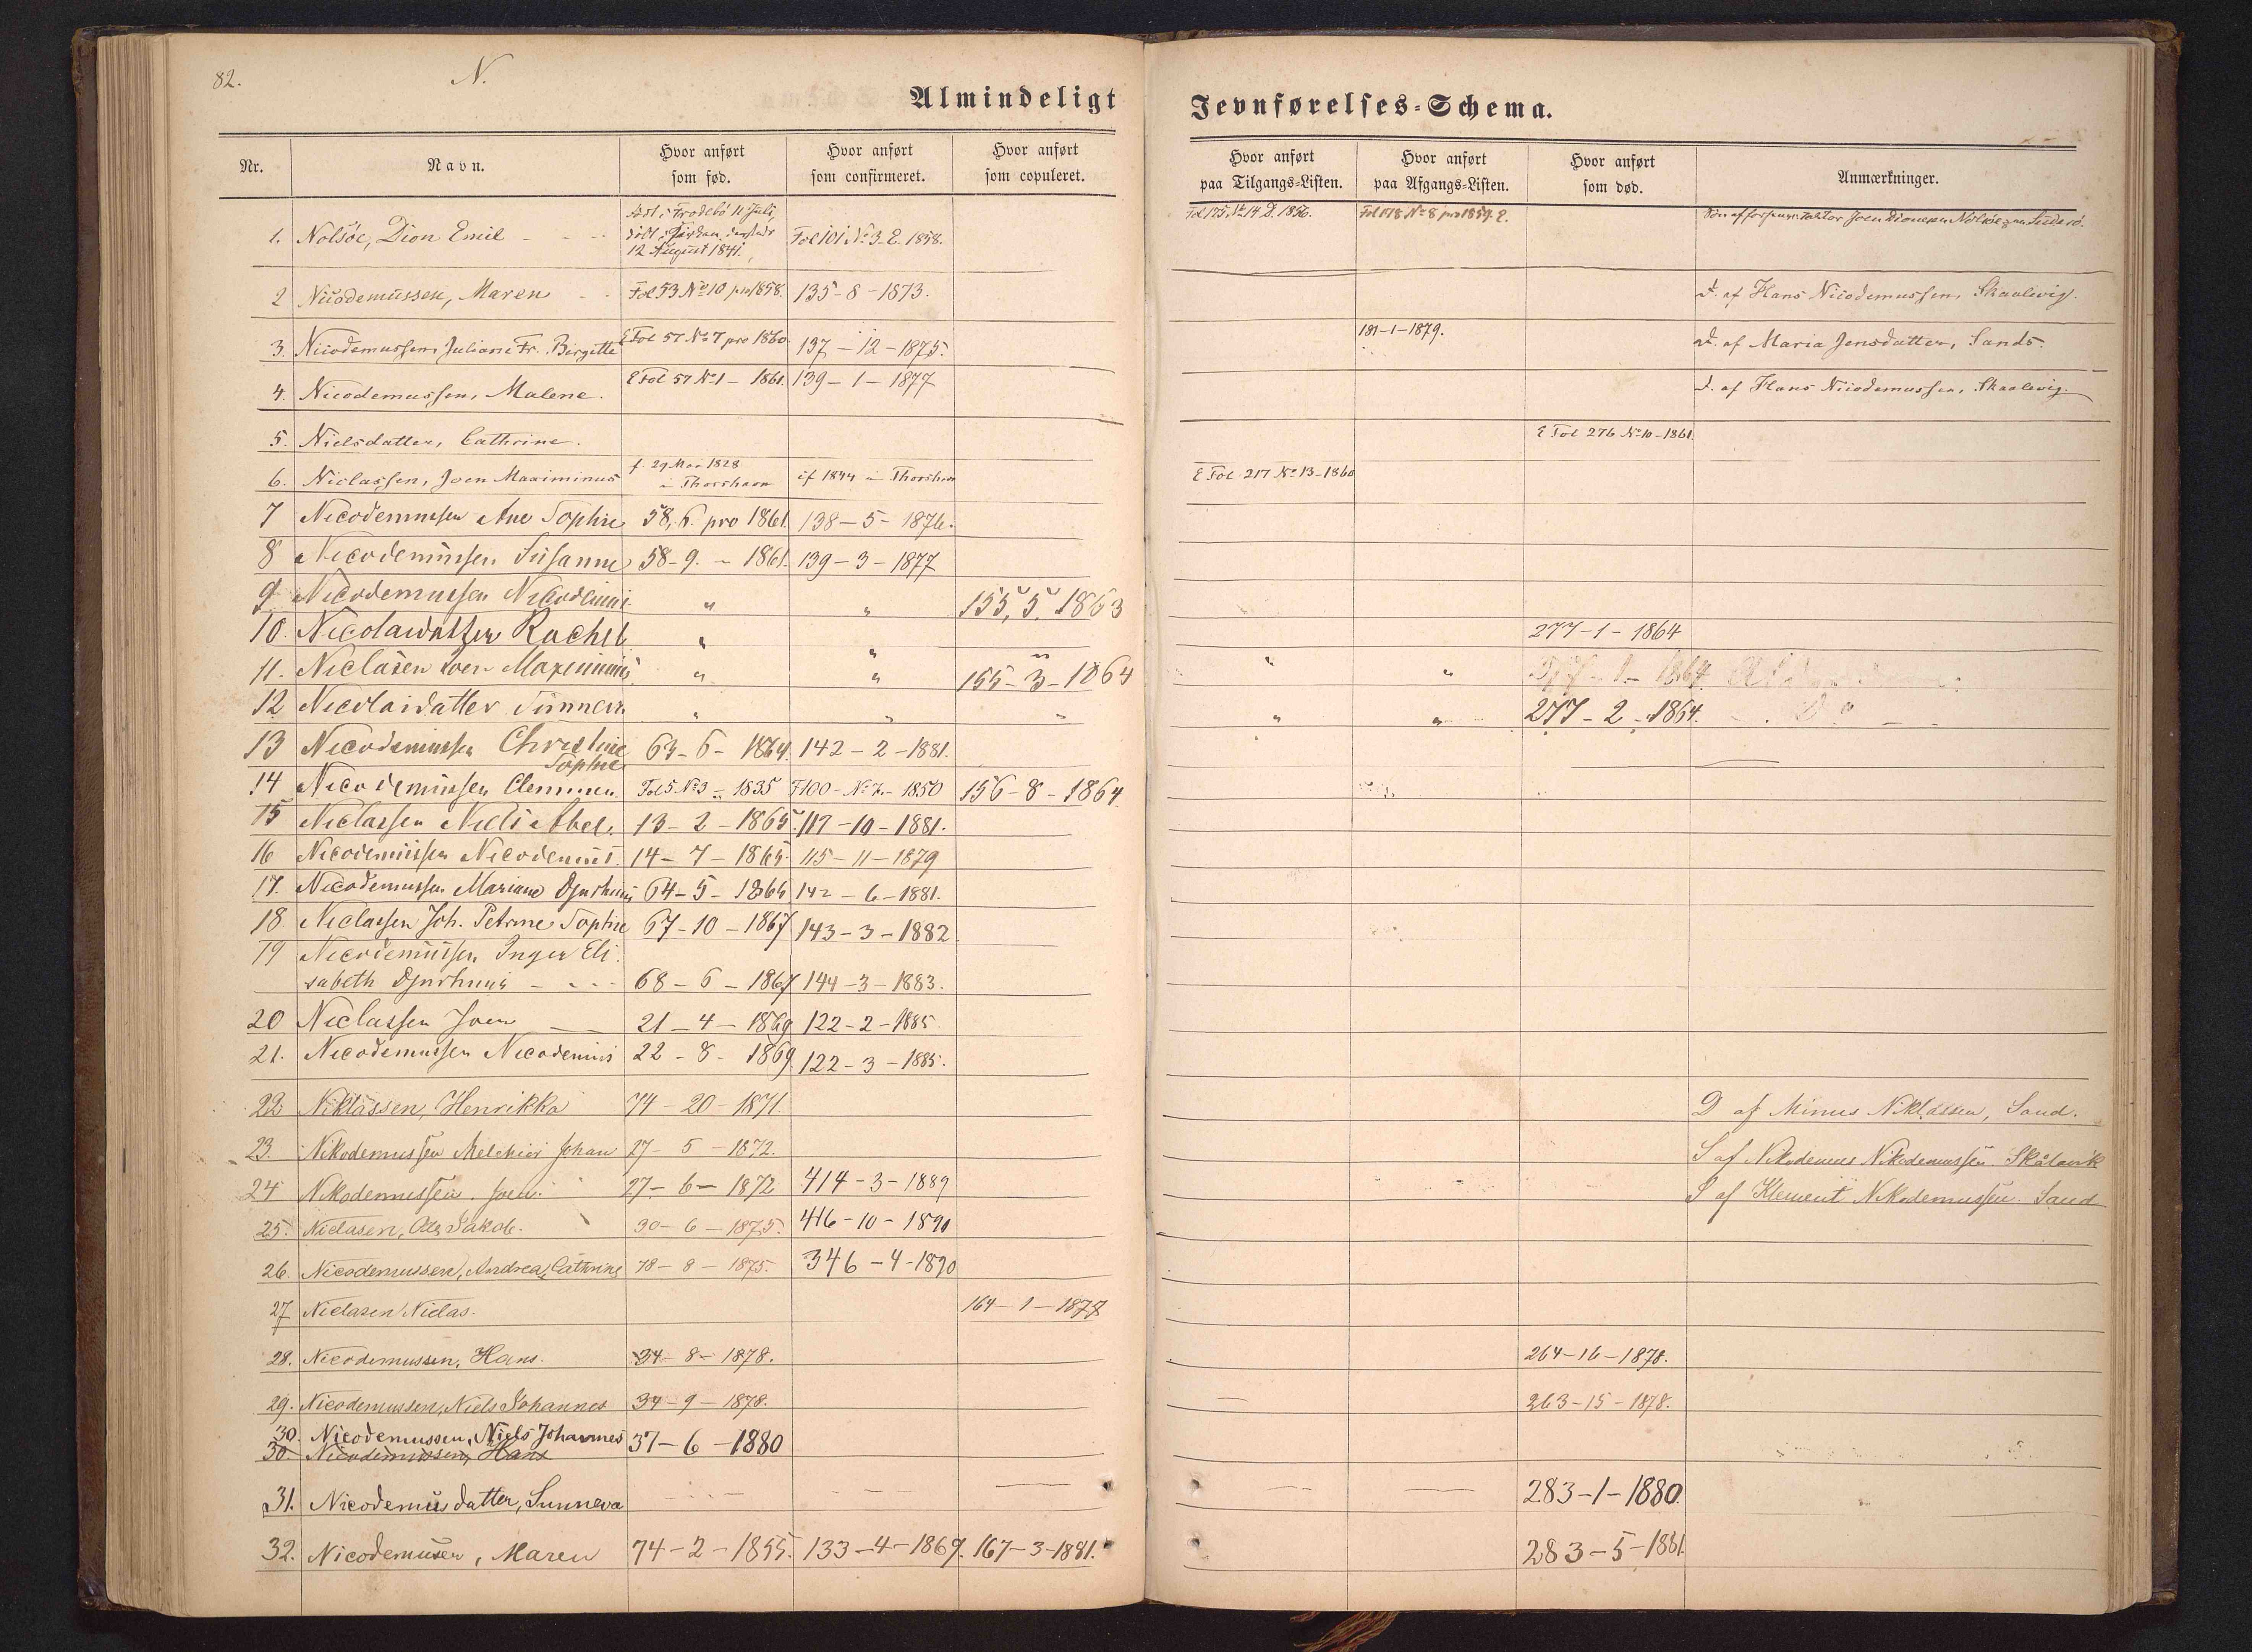 82. N.
Almindeligt Jevnførelses-Schema.
Nr. Navn. Hvor anført som fød. Hvor anført som confirmeret. Hvor anført som copuleret. Hvor anført paa Tilgangs-Listen. Hvor anført paa Afgangs-Listen. Hvor anført som død. Anmærkninger.
1. Nolsöe, Dion Emil - - - Født i Frodebö 11 Juli, döbt i Kirken dersteds 12 August 1841. Fol 101 No 3 E. 1858. Fol 175, No 14 D. 1856. Fol 178 No 8 pro 1859. E. Sön af Joen Dionesen Nolsöe paa Suderö.
2 Nicodemussen, Maren - - Fol 53 No 10 pro 1858. 135-8-1873. D. af Hans Nicodemussen, Skaalevig.
3. Nicodemussen, Juliane Fr. Birgitte E Fol 57 No 7 pro 1860. 137-12-1875. 181-1-1879. D. af Maria Jensdatter, Sands.
4. Nicodemussen, Malene. E Fol 57 No 1 - 1861. 139-1-1877 D. af Hans Nicodemussen, Skaalevig.
5. Nielsdatter, Cathrine. E Fol 276 No 10-1861.
6. Niclassen, Joen Maximinus f. 29 Mai 1828 i Thorshavn cf 1844 i Thorshavn E Fol 217 No 13-1860
7 Nicodemussen Ane Sophie 58, 6. pro 1861. 138-5-1876.
8 Nicodemussen Susanne 58-9. - 1861. 139-3-1877
9 Nicodemussen Nicodemus. " " 155, 5. 1863
10. Nicolaidatter Rachel " " " 277-1-1864
11. Niclasen Joen Maximinus " " 155-3-1864 " "
12 Nicolaidatter Sunneva " " " " " 277-2-1864.
13 Nicodemussen Christine Sophie 63-6-1864. 142-2-1881.
14 Nicodemussen Clemmen. Fol 5 No 3 - 1835 F 100 - No 7 - 1850 156-8-1864
15 Niclassen Niels Abel. 13-2-1865. 117-10-1881.
16 Nicodemussen Nicodemus. 14-7-1865. 115-11-1879
17. Nicodemussen Mariane Djurhuus 64-5-1865 142-6-1881.
18 Niclassen Joh. Petrine Sophie 67-10-1867 143-3-1882.
19 Nicodemussen Inger Eli.
sabeth Djurhuus - - - - 68-6-1867 144-3-1883.
20 Niclassen Joen 21-4-1869 122-2-1885.
21. Nicodemussen Nicodemus 22-8-1869. 122-3-1885.
22 Niklassen, Henrikka 74-20-1871. D af Minus Niklassen, Sand.
23. Nikodemussen Melchior Johan 27-5-1872. S af Nikodemus Nikodemussen. Skålavik
24 Nikodemussen. Joen. 27-6-1872 414-3-1889 S af Klement Nikodemussen. Sand
25. Niclasen, Ole Jakob. 30-6-1875. 416-10-1890
26. Nicodemussen, Andrea Cathrine 78-8-1875. 346-4-1890
27 Niclasen Niclas. 164-1-1878
28. Nicodemussen, Hans. 34-8-1878. 264-16-1878.
29. Nicodemussen, Niels Johannes 34-9-1878. 263-15-1878.
30. Nicodemussen, Niels Johannes 37-6-1880
30. Nicodemussen, Hans
31. Nicodemusdatter, Sunneva 283-1-1880.
32. Nicodemusen, Maren 74-2-1855. 133-4-1869. 167-3-1881. 283-5-1881.